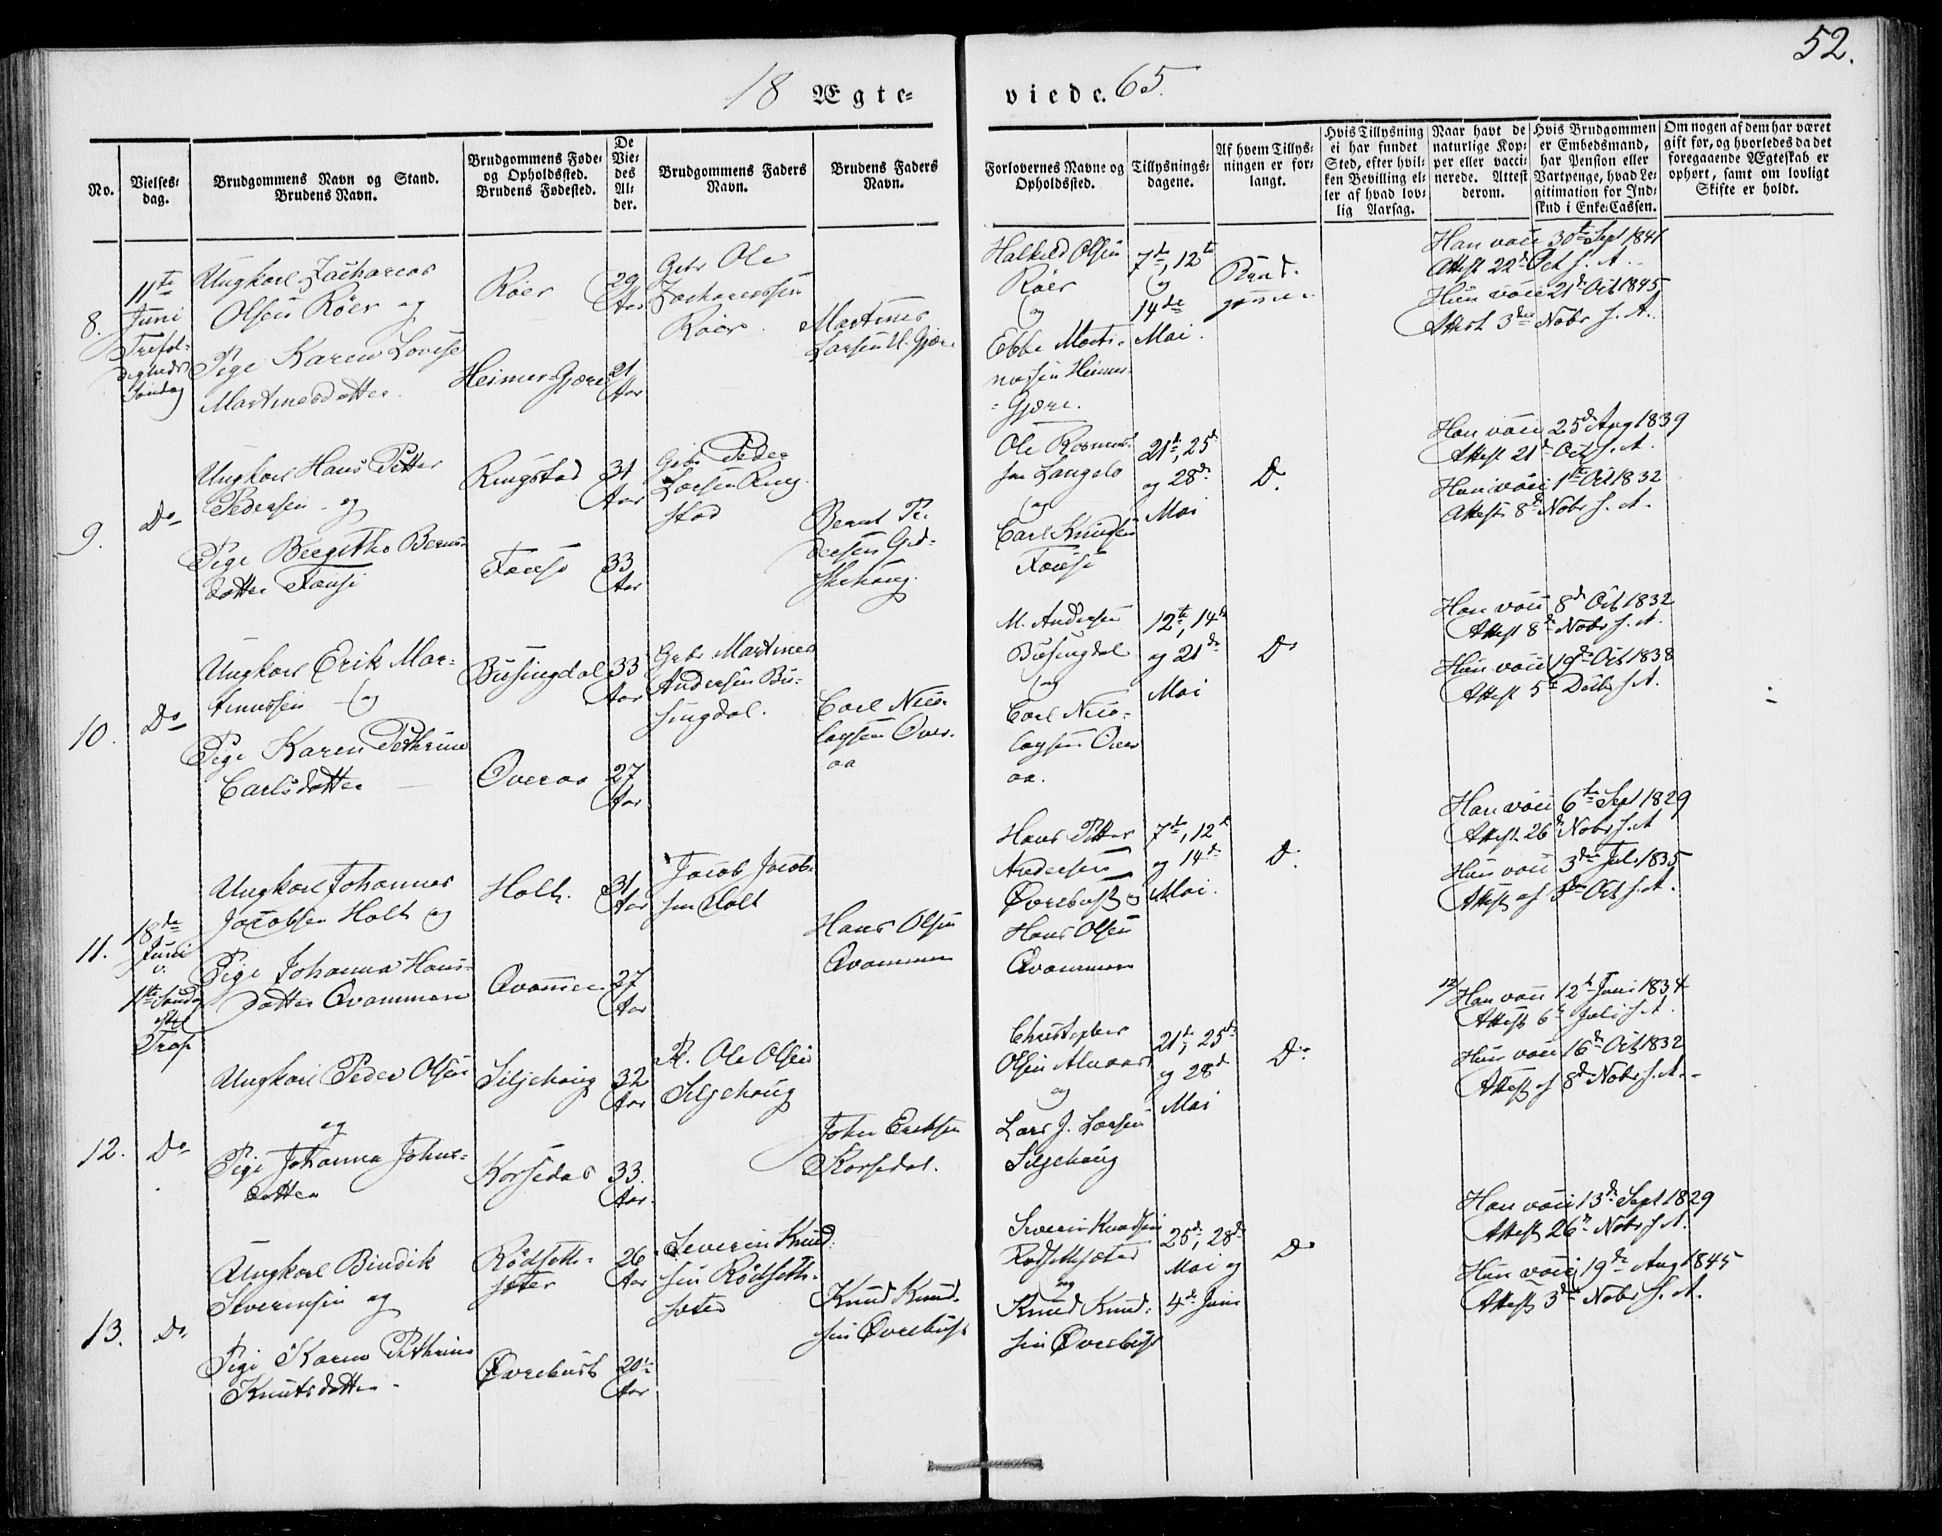 52.
18 Ægte-
viede. 65.
No.
Vielses-
dag.
Brudgommens Navn og Stand.
Brudens Navn.
Brudgommens Føde-
og Opholdssted.
Brudens Fødested.
De
Vie-
des
Al-
der.
Brudgommens Faders
Navn.
Brudens Faders
Navn.
Forlovernes Navne og
Opholdssted.
Tillysnings-
dagene.
Af hvem Tillys-
ningen er for-
langt.
Hvis Tillysning
ei har fundet
Sted, efter hvil-
ken Bevilling el-
ler af hvad lov-
lig Aarsag.
Naar havt de
naturlige Kop-
per eller vacci-
nerede. Attest
derom.
Hvis Brudgommen
er Embedsmand,
har Pension eller
Vartpenge, hvad Le-
gitimation for Ind-
skud i Enke-Cassen.
Om nogen af dem har været
gift før, og hvorledes da det
foregaaende Ægteskab er
ophørt, samt om lovligt
Skifte er holdt.
8.
11te
Juni
Trefol-
digheds
Søndag
Ungkarl Zacharias
Olsen Röer og
Pige Karen Lovise
Martinesdatter.
Röer
Heimer-Gjære
29
Aar
21
Aar
Gbr Ole
Zachariassen
Röer.
Martines
Larsen H. Gjære
Halkild Olsen
Röer
og
Ebbe Marti-
nussen Heimer-
-Gjære.
7de, 12te
og
14de
Mai.
Brud-
gommen.
Han vacc 30te Sept 1841
Attest 22de Oct s. A.
Hun vacc 21de Oct 1845
Attest 3die Nobr s. A.
9.
Do
Ungkarl Hans Petter
Pedersen og
Pige Bergithe Bernts-
datter Tousi
Ringstad
Tousi
31
Aar
33
Aar
Gbr Peder
Larsen Ring-
stad
Bernt Pe-
dersen Gjed-
skehaug.
Ole Rasmus-
sen Langelo
og
Carl Knudsen
Tousi
21de, 25de
og 28de
Mai
Do
Han vacc 25de Aug 1839
Attest 21de Oct s. A.
Hun vacc 1te Oct 1832
Attest 8de Nobr s. A.
10.
Do
Ungkarl Erik Mar-
tinussen og
Pige Karen Pethrine
Carlsdatter
Busingdal
Overaa
33
Aar
27
Aar
Gbr Martines
Andersen Bu-
singdal.
Carl Nico-
laysen Over-
aa
M. Andersen
Busingdal
og
Carl Nico-
laysen Over
aa.
12te, 14de
og 21de
Mai
Do
Han vacc 8de Oct 1832
Attest 8de Nobr s. A.
Hun vacc 19de Oct 1838
Attest 5te Decbr s. A.
11.
18de
Juni
1te Søndag
Tref
Ungkarl Johannes
Jacobsen Holt og
Pige Johanna Hans-
datter Qvammen
Holt.
Qvammen
31
Aar
27
Aar
Jacob Jacob-
sen Holt
Hans Olsen
Qvammen
Hans Petter
Andersen
Øvrebust og
Hans Olsen
Qvammen
7de, 12te
og 14de
Mai.
Do
Han vacc 6te Sept 1829
Attest 26de Nobr s. A
Hun vacc 3die Juli 1835
Attest af 8de Oct s. A.
12.
Do
Ungkarl Peder Olsen
og
Pige Johanna Johns-
datter
Siljehaug
Korsedal
32
Aar
33.
Aar.
Ole Olsen
Siljehaug
John Eriksen
Korsedal.
Christopher
Olsen Alvaar
og
Lars J. Larsen
Siljehaug
21de, 25de
og 28de
Mai
Do
Han vacc 12te Juni 1834
Attest 6te Juli s. A.
Hun vacc 16de Oct 1832
Attest af 8de Nobr s. A.
13.
Do
Ungkarl Bendik
Severinsen og
Pige Karen Pethrine
Knutsdatter
Rödseth-
sæter
Øvrebust
26
Aar
20
Aar
Severin Knud-
sen Rödseth-
sæter
Knud Knud-
sen Øvrebust
Severin Knudsen
Rödsethsæter
og
Knud Knud-
sen Øvrebust
25de, 28de
Mai og
4de Juni
Do
Han vacc 13de Sept 1829
Attest 26de Nobr s. A.
Hun vacc 19de Aug 1845
Attest 3die Nobr s. A.